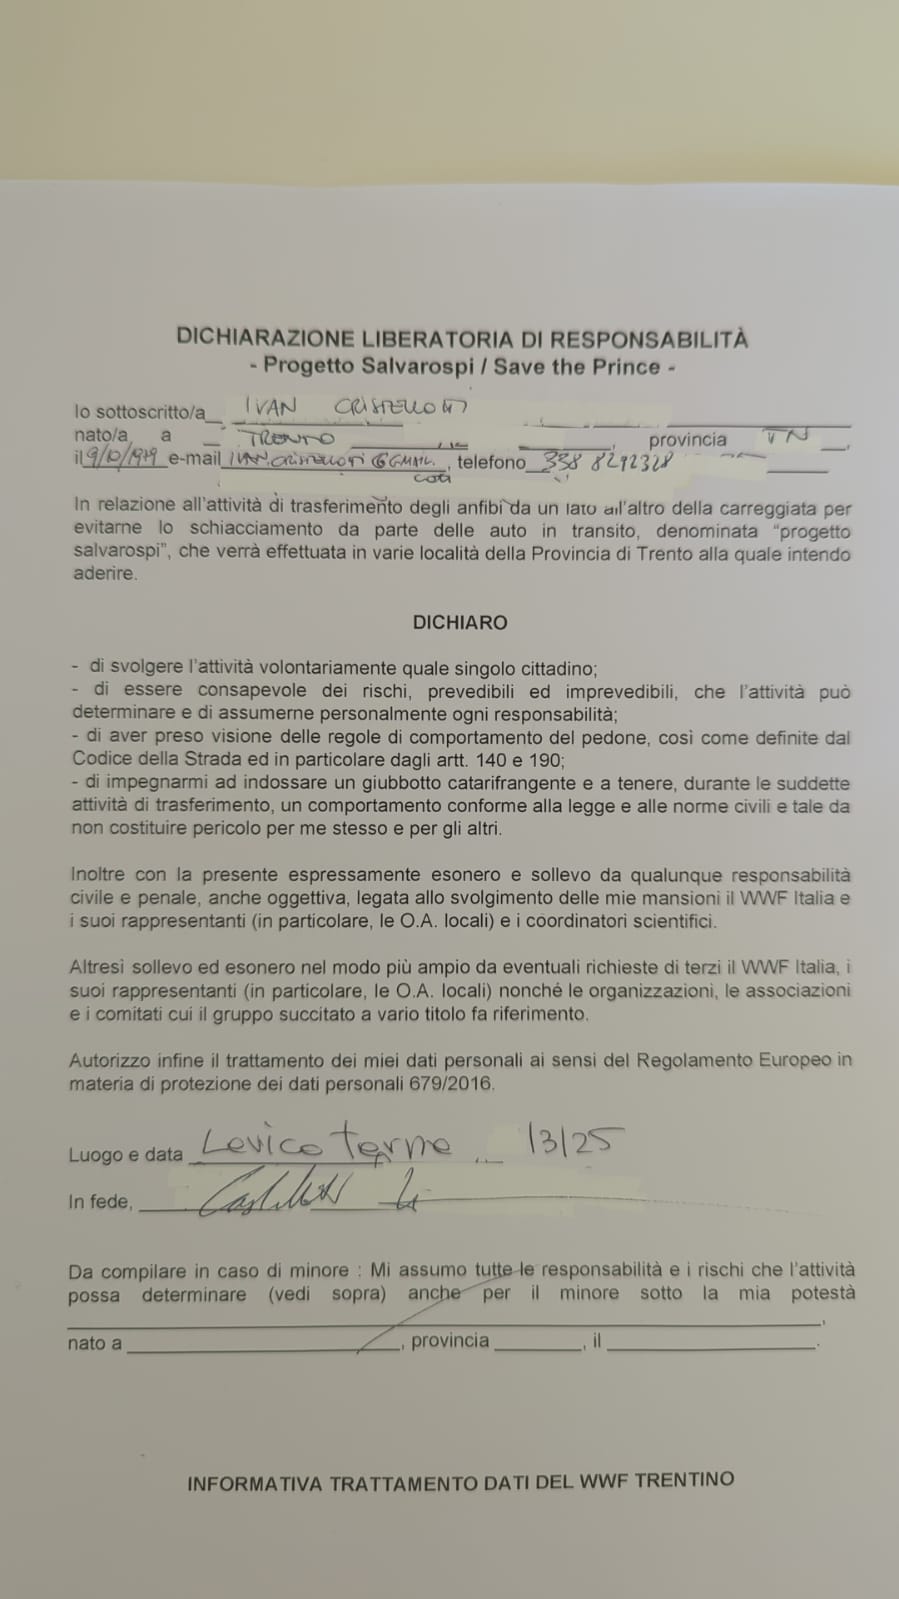 DICHIARAZIONE LIBERATORIA DI RESPONSABILITÀ
- Progetto Salvarospi / Save the Prince -
Io sottoscritto/a IVAN CRISTELLOTTI
nato/a a TRENTO, provincia TN,
il 9/10/1979 e-mail IVAN.CRISTELLOTTI@GMAIL.COM, telefono 338 8292328
In relazione all'attività di trasferimento degli anfibi da un lato all'altro della carreggiata per
evitarne lo schiacciamento da parte delle auto in transito, denominata “progetto
salvarospi”, che verrà effettuata in varie località della Provincia di Trento alla quale intendo
aderire.
DICHIARO
- di svolgere l'attività volontariamente quale singolo cittadino;
- di essere consapevole dei rischi, prevedibili ed imprevedibili, che l'attività può
determinare e di assumerne personalmente ogni responsabilità;
- di aver preso visione delle regole di comportamento del pedone, così come definite dal
Codice della Strada ed in particolare dagli artt. 140 e 190;
- di impegnarmi ad indossare un giubbotto catarifrangente e a tenere, durante le suddette
attività di trasferimento, un comportamento conforme alla legge e alle norme civili e tale da
non costituire pericolo per me stesso e per gli altri.
Inoltre con la presente espressamente esonero e sollevo da qualunque responsabilità
civile e penale, anche oggettiva, legata allo svolgimento delle mie mansioni il WWF Italia e
i suoi rappresentanti (in particolare, le O.A. locali) e i coordinatori scientifici.
Altresì sollevo ed esonero nel modo più ampio da eventuali richieste di terzi il WWF Italia, i
suoi rappresentanti (in particolare, le O.A. locali) nonché le organizzazioni, le associazioni
e i comitati cui il gruppo succitato a vario titolo fa riferimento.
Autorizzo infine il trattamento dei miei dati personali ai sensi del Regolamento Europeo in
materia di protezione dei dati personali 679/2016.
Luogo e data Levico Terme 1/3/25
In fede,
Da compilare in caso di minore : Mi assumo tutte le responsabilità e i rischi che l'attività
possa determinare (vedi sopra) anche per il minore sotto la mia potestà
,
nato a , provincia , il .
INFORMATIVA TRATTAMENTO DATI DEL WWF TRENTINO